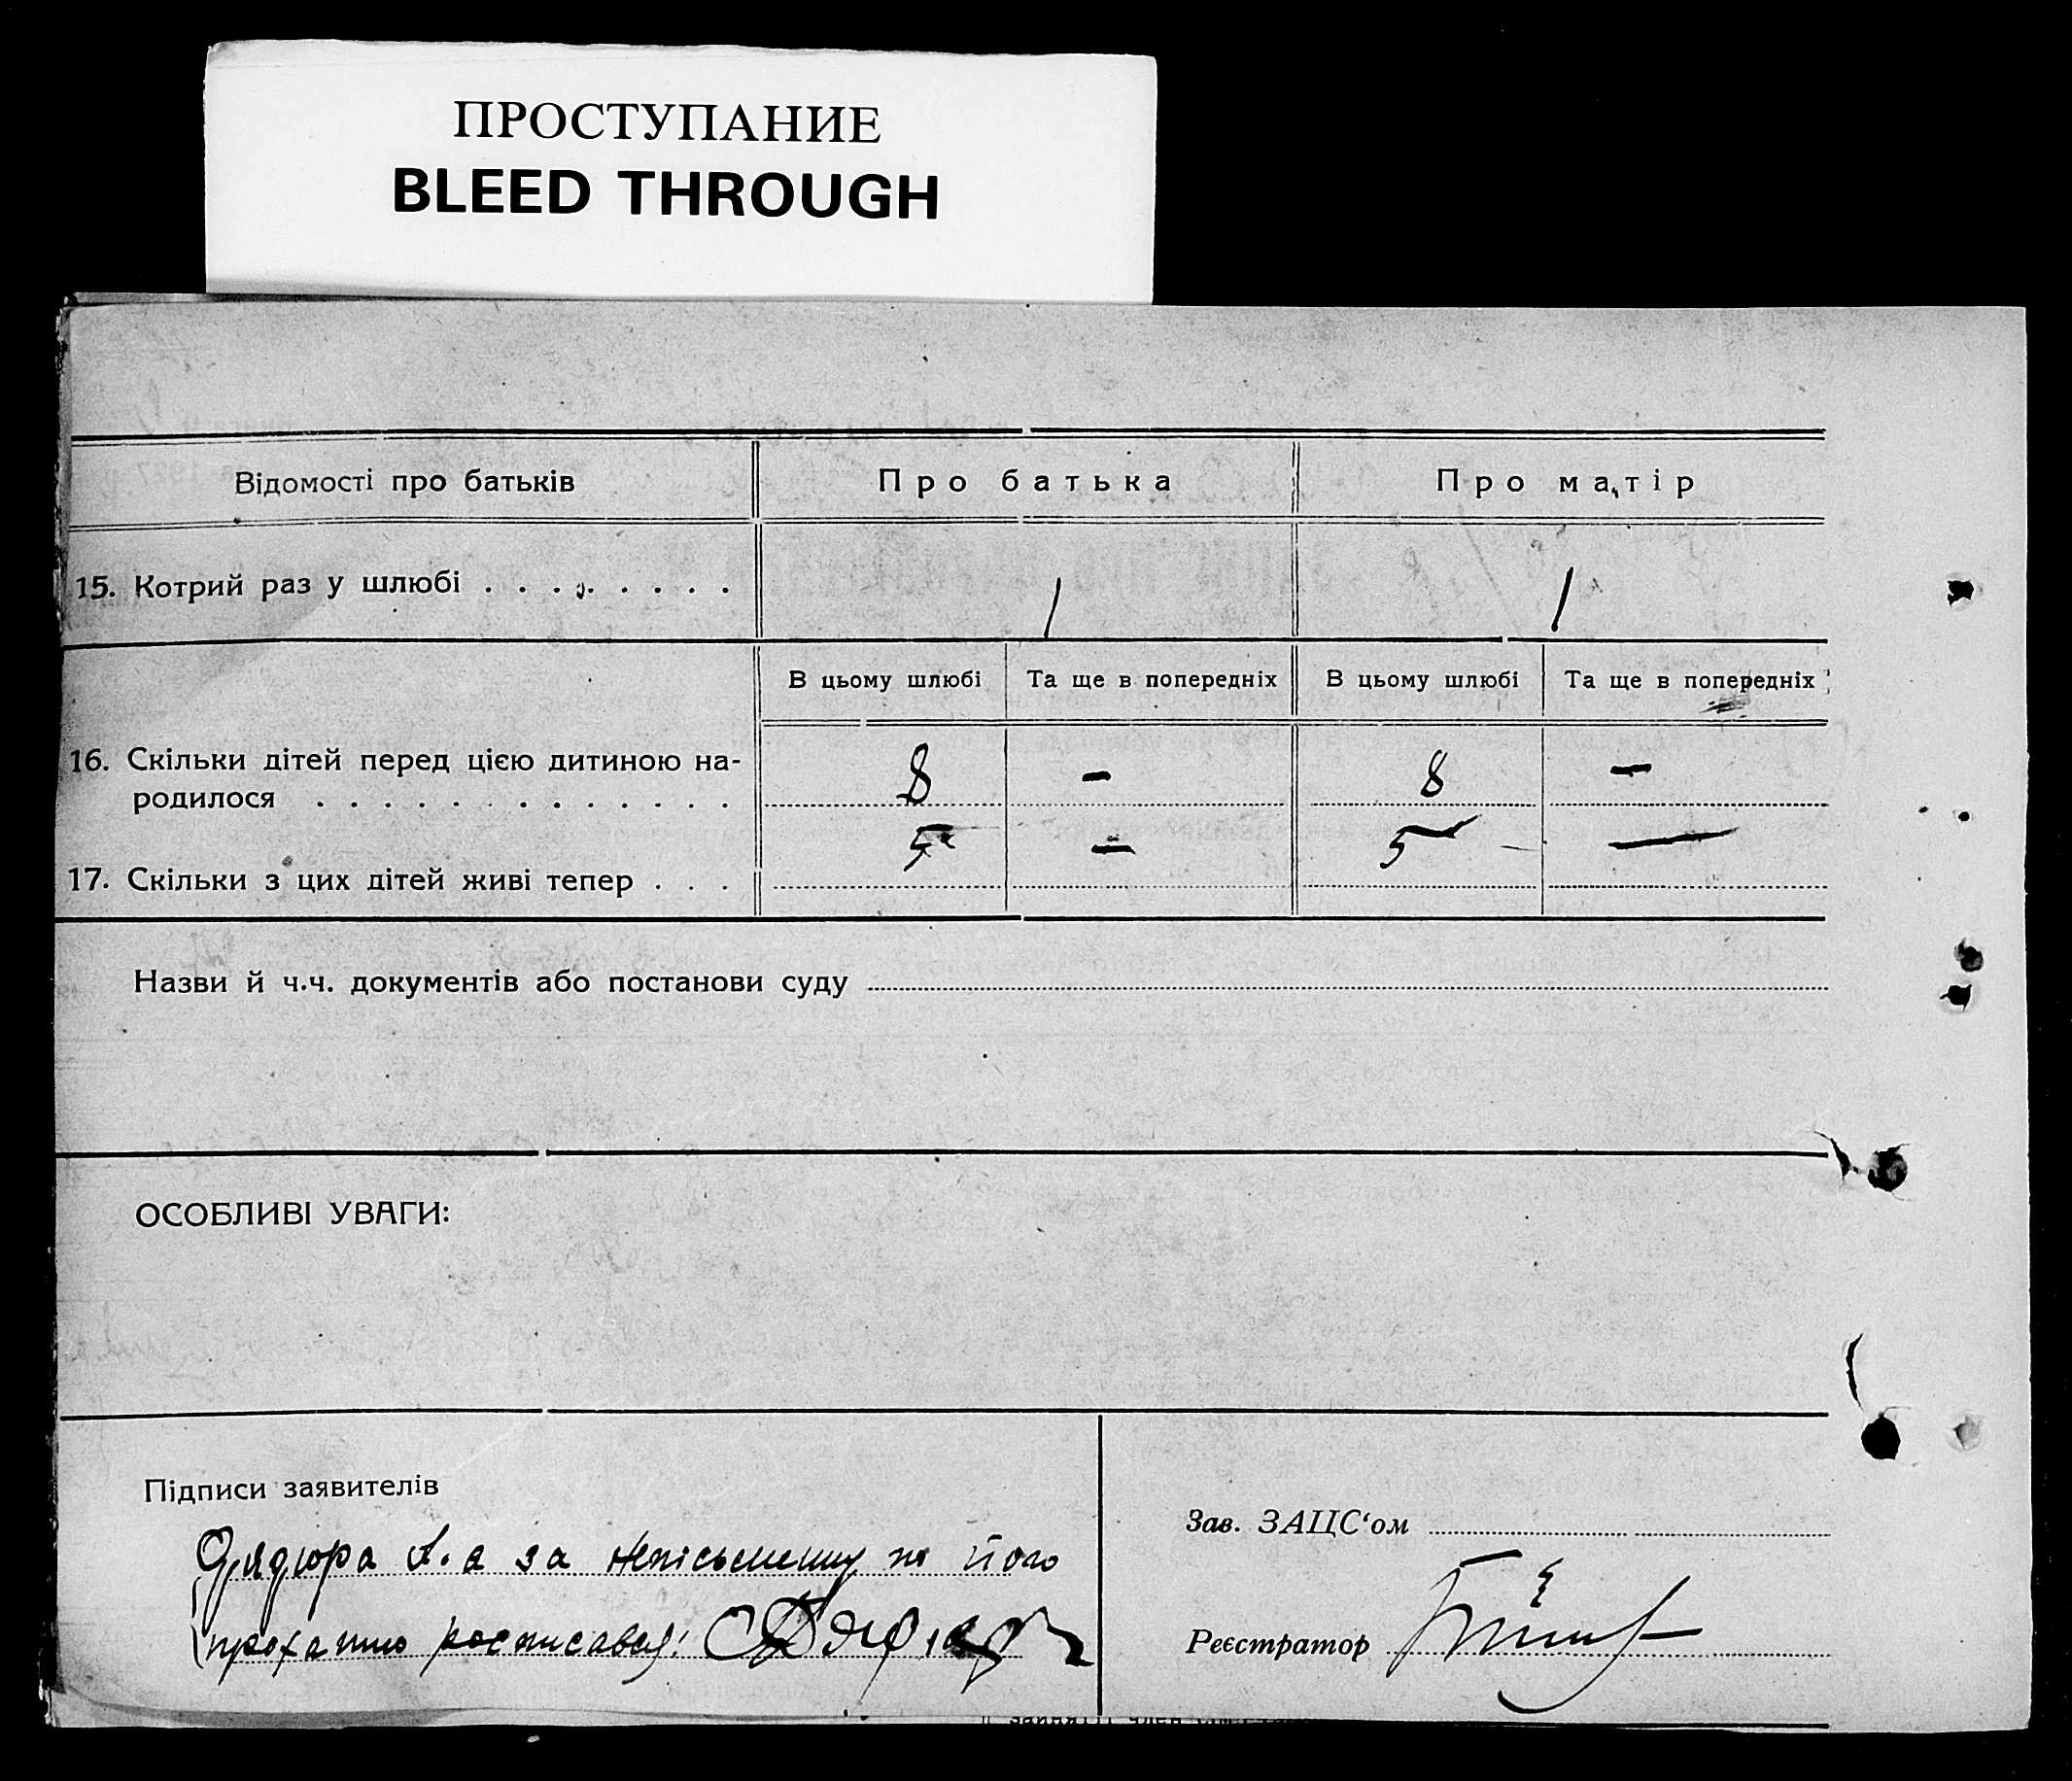 ПРОСТУПАНИЕ
BLEED THROUGH
Відомості про батьків
Про батька
Про матір
15. Котрий раз у шлюбі . . . . . . . .
1
1
В цьому шлюбі
Та ще в попередніх
В цьому шлюбі
Та ще в попередніх
16. Скільки дітей перед цією дитиною на-
родилося . . . . . . . . . . . . .
8
-
8
-
17. Скільки з цих дітей живі тепер . . .
5
-
5
-
Назви й ч.ч. документів або постанови суду
ОСОБЛИВІ УВАГИ:
Підписи заявителів
Дядюра А. а за непісьменну по його
проханню росписавсь:
Зав. ЗАЦС‘ом
Реєстратор